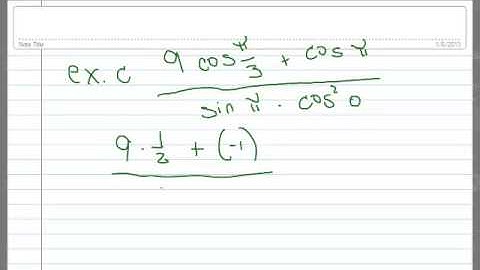 Note Title
1/6/2013
ex. c (9 cos π/3 + cos π) / (sin π · cos² 0)
9 · 1/2 + (-1)